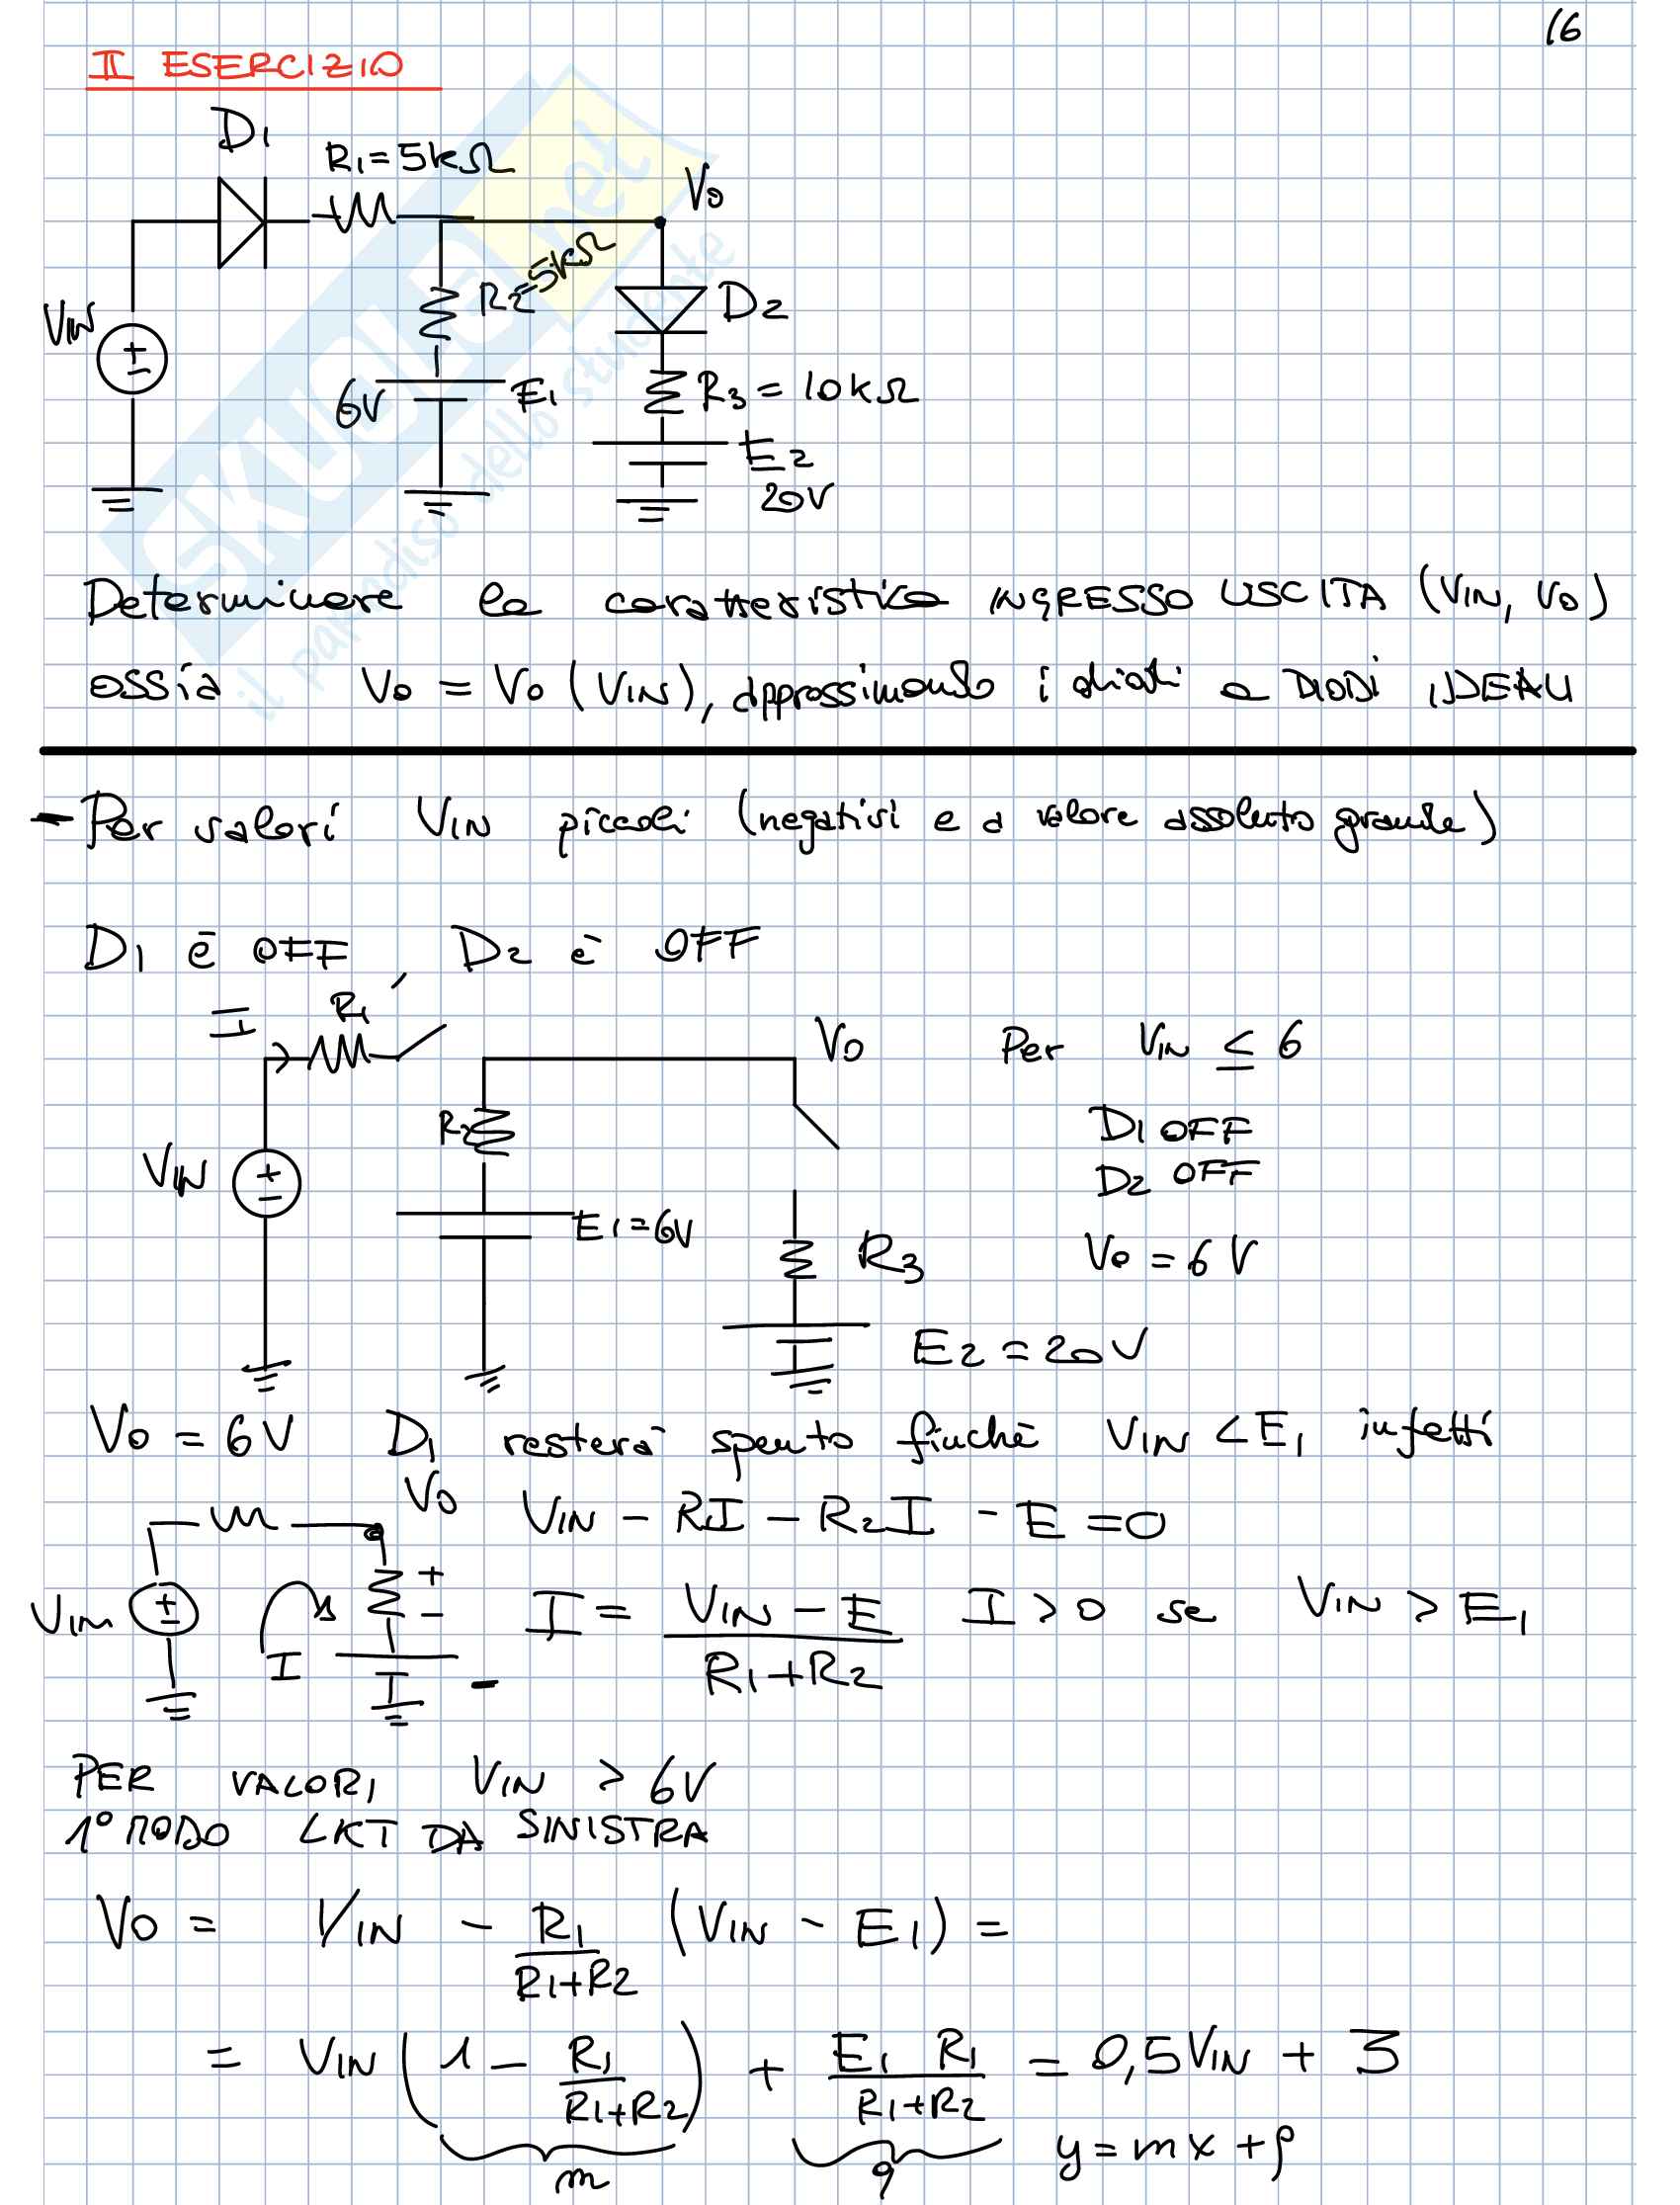 16
II ESERCIZIO
D1
R1=5kΩ
V0
R2=5kΩ
D2
VIN
+
6V
E1
R3 = 10kΩ
E2
20V
SKUOLA.net
il paradiso dello studente
Determinare la caratteristica INGRESSO USCITA (VIN, V0)
ossia V0 = V0 (VIN), approssimando i diodi a DIODI IDEALI
- Per valori VIN piccoli (negativi e a valore assoluto grande)
D1 è OFF, D2 è OFF
I R1
V0
Per VIN ≤ 6
R2
D1 OFF
VIN
+
D2 OFF
E1=6V
R3
V0 = 6V
E2 = 20V
V0 = 6V D1 resterà spento finchè VIN < E1 infatti
V0
VIN - RI - R2I - E = 0
VIN
+
+
-
I
-
I = VIN - E / R1+R2 I > 0 se VIN > E1
PER VALORI VIN > 6V
1° MODO LKT DA SINISTRA
V0 = VIN - R1 / R1+R2 (VIN - E1) =
= VIN (1 - R1 / R1+R2) + E1 R1 / R1+R2 = 0,5VIN + 3
m
q
y = mx + q